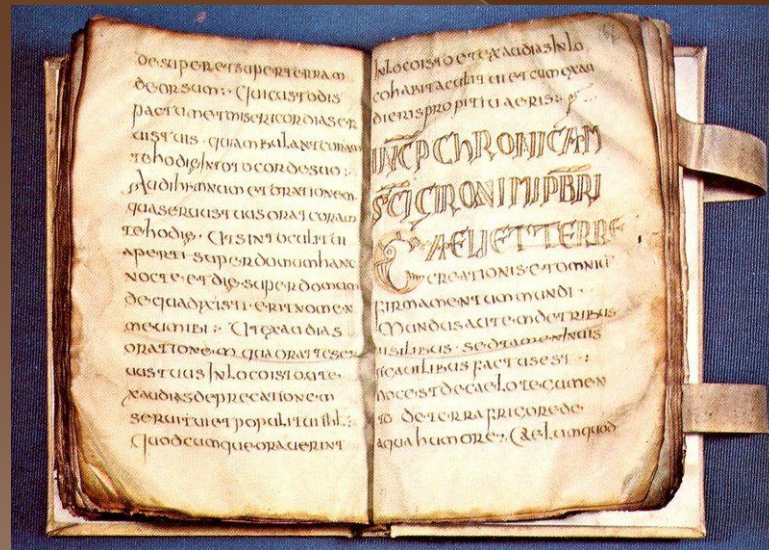 desuper et super terram
deorsum:· Qui custodis
pactum et misericordias er
uis tuis · qu ambulant coram
te hodie in toto corde suo :
Audi himnum et orationem
qua seruus tuus orat coram
te hodie · Ut sint oculi tui
aperti super domum hanc
nocte · et die · super domum
de qua dixisti · erit nomen
meum ibi :· Ut exaudias
orationem qua orat te ser
uus tuus in loco isto ut e
xaudias deprecationem
serui tui et populi tui ihl :·
Quodcumque orauerint
in loco isto et exaudias in lo
co habitaculi tui et cum exau
dieris propitiu aeris :·
INCP CHRONICAM
SCI GIRONIMI PBRI
CAELI ET TERRE
creationis et omniu
firmamentum mundi ·
Mundus autem de tribus
uisilibus · sed tamen in uis
ticauilibus factus est :
hoc est de caelo tegumen
to de terra fricore de
aqua humore ; Caelum quod